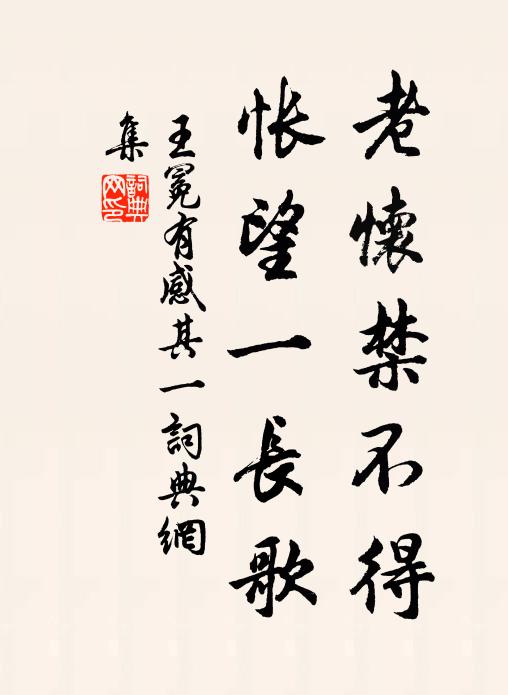 老懷禁不得
悵望一長歌
王冕有感其一詞典網
集
詞典
网印